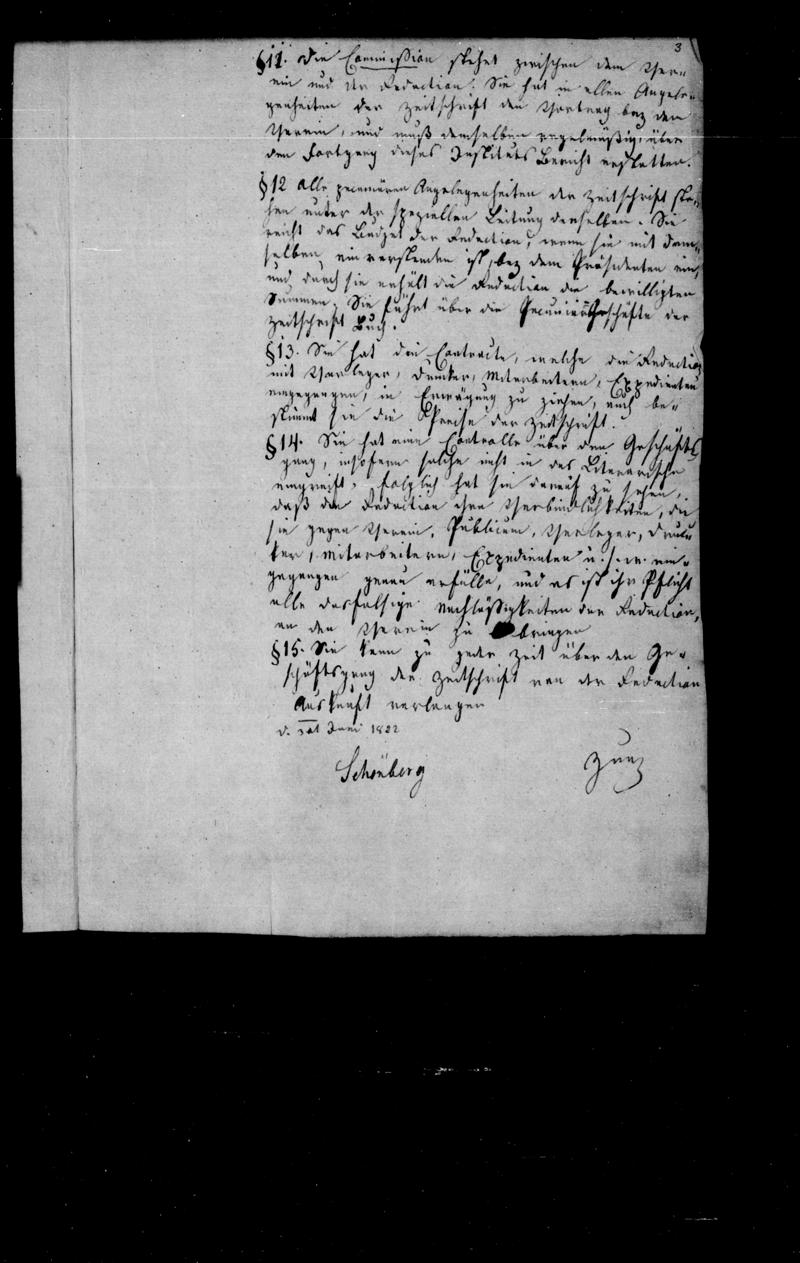 3
§11. Die Commission stehet zwischen dem Ver-
ein und der Redaction. Sie hat in allen Angele-
genheiten der Zeitschrift den Vortrag bey dem
Verein, und muß demselben regelmäßig über
den Fortgang dieses Instituts Bericht erstatten.
§12 Alle pecuniären Angelegenheiten der Zeitschrift ste-
hen unter der speziellen Leitung derselben. Sie
reicht das Budget der Redaction, wenn sie mit dem-
selben einverstanden ist, bey dem Präsidenten ein,
und durch sie erhält die Redaction die bewilligten
Summen. Sie führt über die Pecuniärgeschäfte der
Zeitschrift Buch.
§13. Sie hat die Contracte, welche die Redaction
mit Verleger, Drucker, Mitarbeitern, Expedienten
eingegangen, in Erwägung zu ziehen, auch be-
stimmt sie die Preise der Zeitschrift.
§14. Sie hat eine Controlle über den Geschäfts
gang, insofern solche nicht in das Literarische
eingreift, folglich hat sie darauf zu sehen,
daß die Redaction ihre Verbindlichkeiten, die
sie gegen Verein, Publicum, Verleger, Druk-
ker, Mitarbeitern, Expedienten u.s.w. ein-
gegangen genau erfülle, und es ist ihr Pflicht
alle desfalsige Nachläßigkeiten der Redaction,
an den Verein zu bringen
§15. Sie kann zu jeder Zeit über den Ge-
schäftsgang der Zeitschrift von der Redaction
Auskunft verlangen
d. Juni 1822
Schönberg Zunz